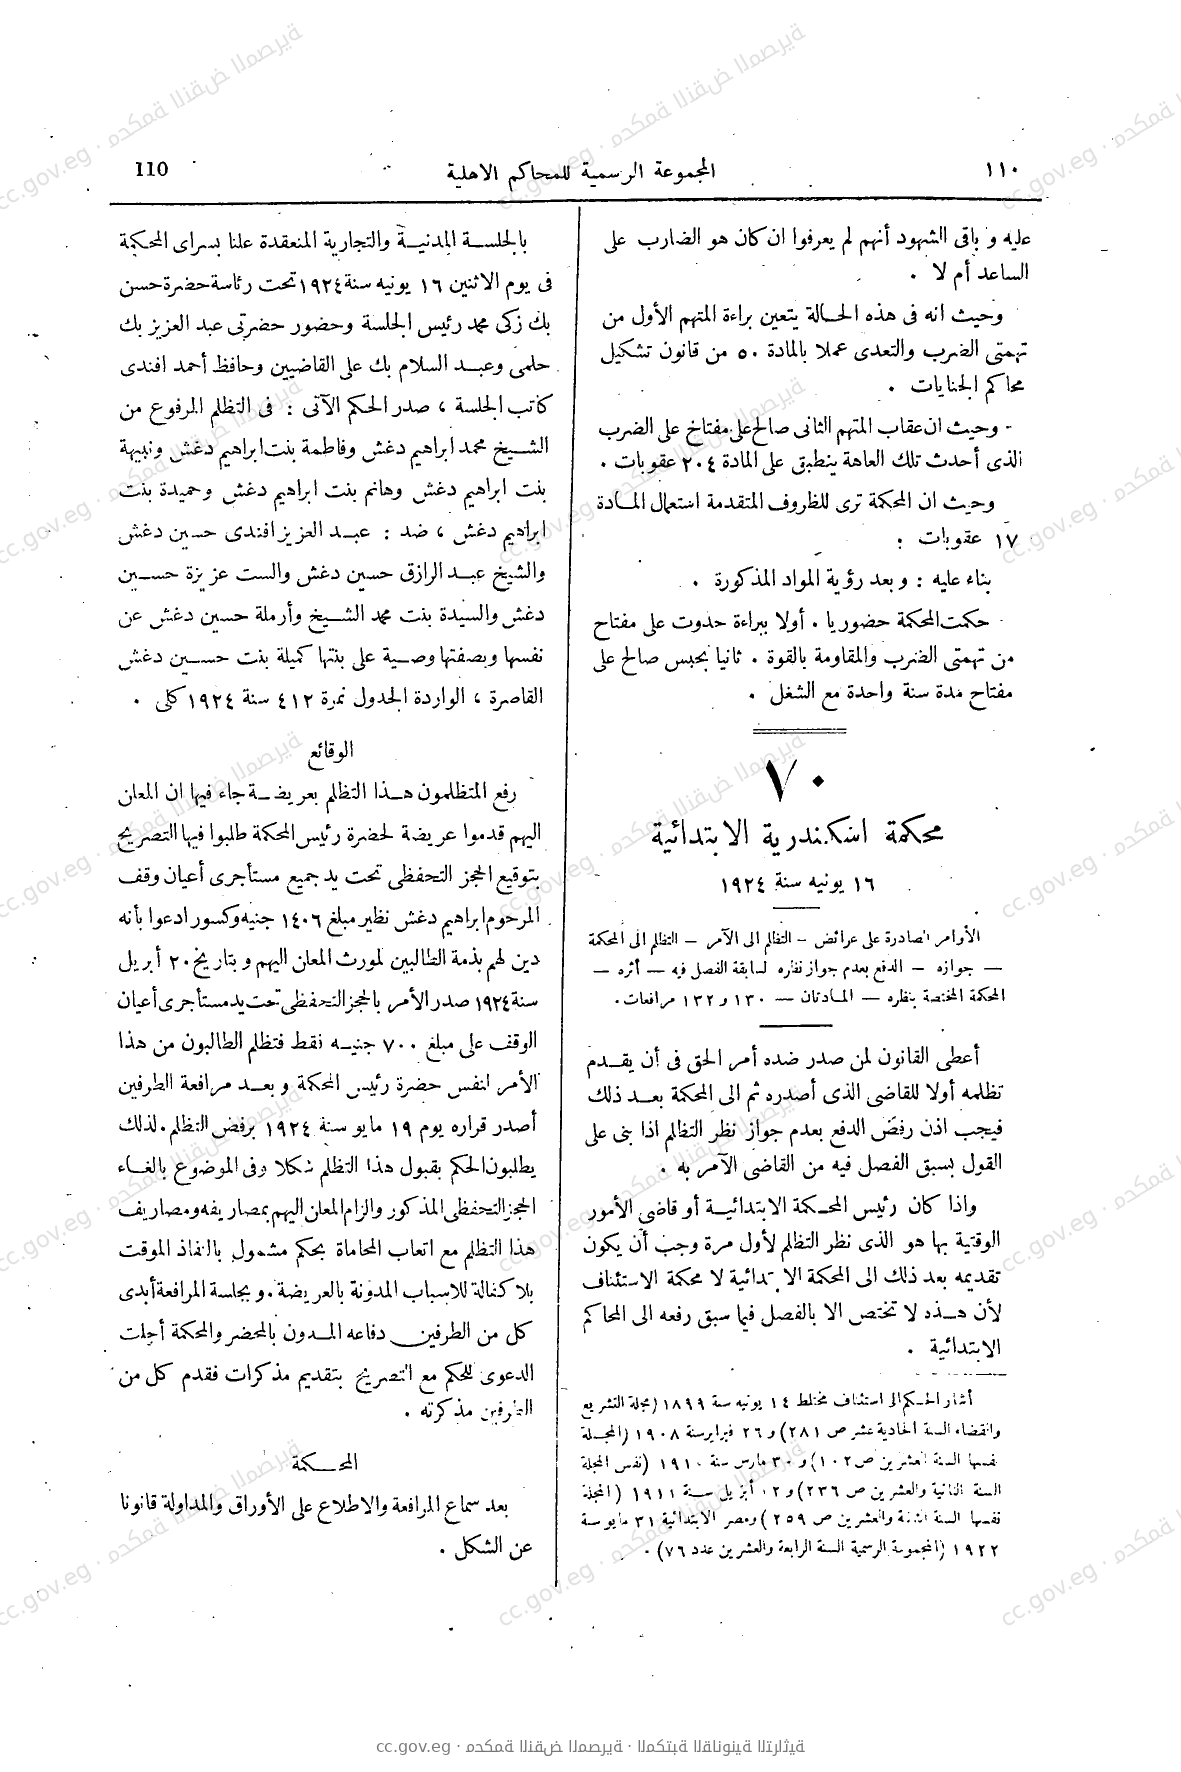 ١١٠
المجموعة الرسمية للمحاكم الاهلية
110
عليه وباقى الشهود أنهم لم يعرفوا ان كان هو الضارب على
الساعد أم لا .
وحيث انه فى هذه الحالة يتعين براءة المتهم الأول من
تهمتى الضرب والتعدى عملا بالمادة ٥٠ من قانون تشكيل
محاكم الجنايات .
وحيث ان عقاب المتهم الثانى صالح على مفتاخ على الضرب
الذى أحدث تلك العاهة ينطبق على المادة ٢٠٤ عقوبات .
وحيث ان المحكمة ترى للظروف المتقدمة استعمال المادة
١٧ عقوبات :
بناء عليه : وبعد رؤية المواد المذكورة .
حكمت المحكمة حضوريا . أولا ببراءة حدوت على مفتاح
من تهمتى الضرب والمقاومة بالقوة . ثانيا بحبس صالح على
مفتاح مدة سنة واحدة مع الشغل .
٧٠
محكمة اسكندرية الابتدائية
١٦ يونيه سنة ١٩٢٤
الأوامر الصادرة على عرائض – التظلم الى الآمر – التظلم الى المحكمة
— جوازه – الدفع بعدم جواز نظره لسابقة الفصل فيه — أثره —
المحكمة المختصة بنظره — المادتان — ١٣٠ و ١٣٢ مرافعات .
أعطى القانون لمن صدر ضده أمر الحق فى أن يقدم
تظلمه أولا للقاضى الذى أصدره ثم الى المحكمة بعد ذلك
فيجب اذن رفض الدفع بعدم جواز نظر التظلم اذا بنى على
القول بسبق الفصل فيه من القاضى الآمر به .
واذا كان رئيس المحكمة الابتدائية أو قاضى الأمور
الوقتية بها هو الذى نظر التظلم لأول مرة وجب أن يكون
تقديمه بعد ذلك الى المحكمة الابتدائية لا محكمة الاستئناف
لأن هذه لا تختص الا بالفصل فيما سبق رفعه الى المحاكم
الابتدائية .
أشار الحكم الى استئناف مختلط ١٤ يونيه سنة ١٨٩٩ (مجلة التشريع
والقضاء السنة الحادية عشر ص ٢٨١) و ٢٦ فبراير سنة ١٩٠٨ (المجلة
نفسها السنة العشرين ص ١٠٢) و ٣٠ مارس سنة ١٩١٠ (نفس المجلة
السنة الثانية والعشرين ص ٢٣٦) و أبريل سنة ١٩١١ (المجلة
نفسها السنة الثالثة والعشرين ص ٢٥٩) ومصر الابتدائية ٣١ مايو سنة
١٩٢٢ (المجموعة الرسمية السنة الرابعة والعشرين عدد ٧٦) .
بالجلسة المدنية والتجارية المنعقدة علنا بسراى المحكمة
فى يوم الاثنين ١٦ يونيه سنة ١٩٢٤ تحت رئاسة حضرة حسن
بك زكى محمد رئيس الجلسة وحضور حضرتى عبد العزيز بك
حلمى وعبد السلام بك على القاضيين وحافظ أحمد افندى
كاتب الجلسة ، صدر الحكم الآتى : فى التظلم المرفوع من
الشيخ محمد ابراهيم دغش وفاطمة بنت ابراهيم دغش ونبيهة
بنت ابراهيم دغش وهانم بنت ابراهيم دغش وحميدة بنت
ابراهيم دغش ، ضد : عبد العزيز افندى حسين دغش
والشيخ عبد الرازق حسين دغش والست عزيزة حسين
دغش والسيدة بنت محمد الشيخ وأرملة حسين دغش عن
نفسها وبصفتها وصية على بنتها كميلة بنت حسين دغش
القاصرة ، الواردة الجدول نمرة ٤١٢ سنة ١٩٢٤ كلى .
الوقائع
رفع المتظلمون هذا التظلم بعريضة جاء فيها ان المعلن
اليهم قدموا عريضة لحضرة رئيس المحكمة طلبوا فيها التصريح
بتوقيع الحجز التحفظى تحت يد جميع مستأجرى أعيان وقف
المرحوم ابراهيم دغش نظير مبلغ ١٤٠٦ جنيه وكسور ادعوا بأنه
دين لهم بذمة الطالبين لمورث المعلن اليهم وبتاريخ ٢٠ أبريل
سنة ١٩٢٤ صدر الأمر بالحجز التحفظى تحت يد مستأجرى أعيان
الوقف على مبلغ ٧٠٠ جنيه فقط فتظلم الطالبون من هذا
الأمر لنفس حضرة رئيس المحكمة وبعد مرافعة الطرفين
أصدر قراره يوم ١٩ مايو سنة ١٩٢٤ برفض التظلم . لذلك
يطلبون الحكم بقبول هذا التظلم شكلا وفى الموضوع بالغاء
الحجز التحفظى المذكور والزام المعلن اليهم بمصاريفه ومصاريف
هذا التظلم مع اتعاب المحاماة بحكم مشمول بالنفاذ الموقت
بلا كفالة للاسباب المدونة بالعريضة . وبجلسة المرافعة أبدى
كل من الطرفين دفاعه المدون بالمحضر والمحكمة أجلت
الدعوى للحكم مع التصريح بتقديم مذكرات فقدم كل من
الطرفين مذكرته .
المحكمة
بعد سماع المرافعة والاطلاع على الأوراق والمداولة قانونا
عن الشكل .
cc.gov.eg · محكمة النقض المصرية · المكتبة القانونية التراثية